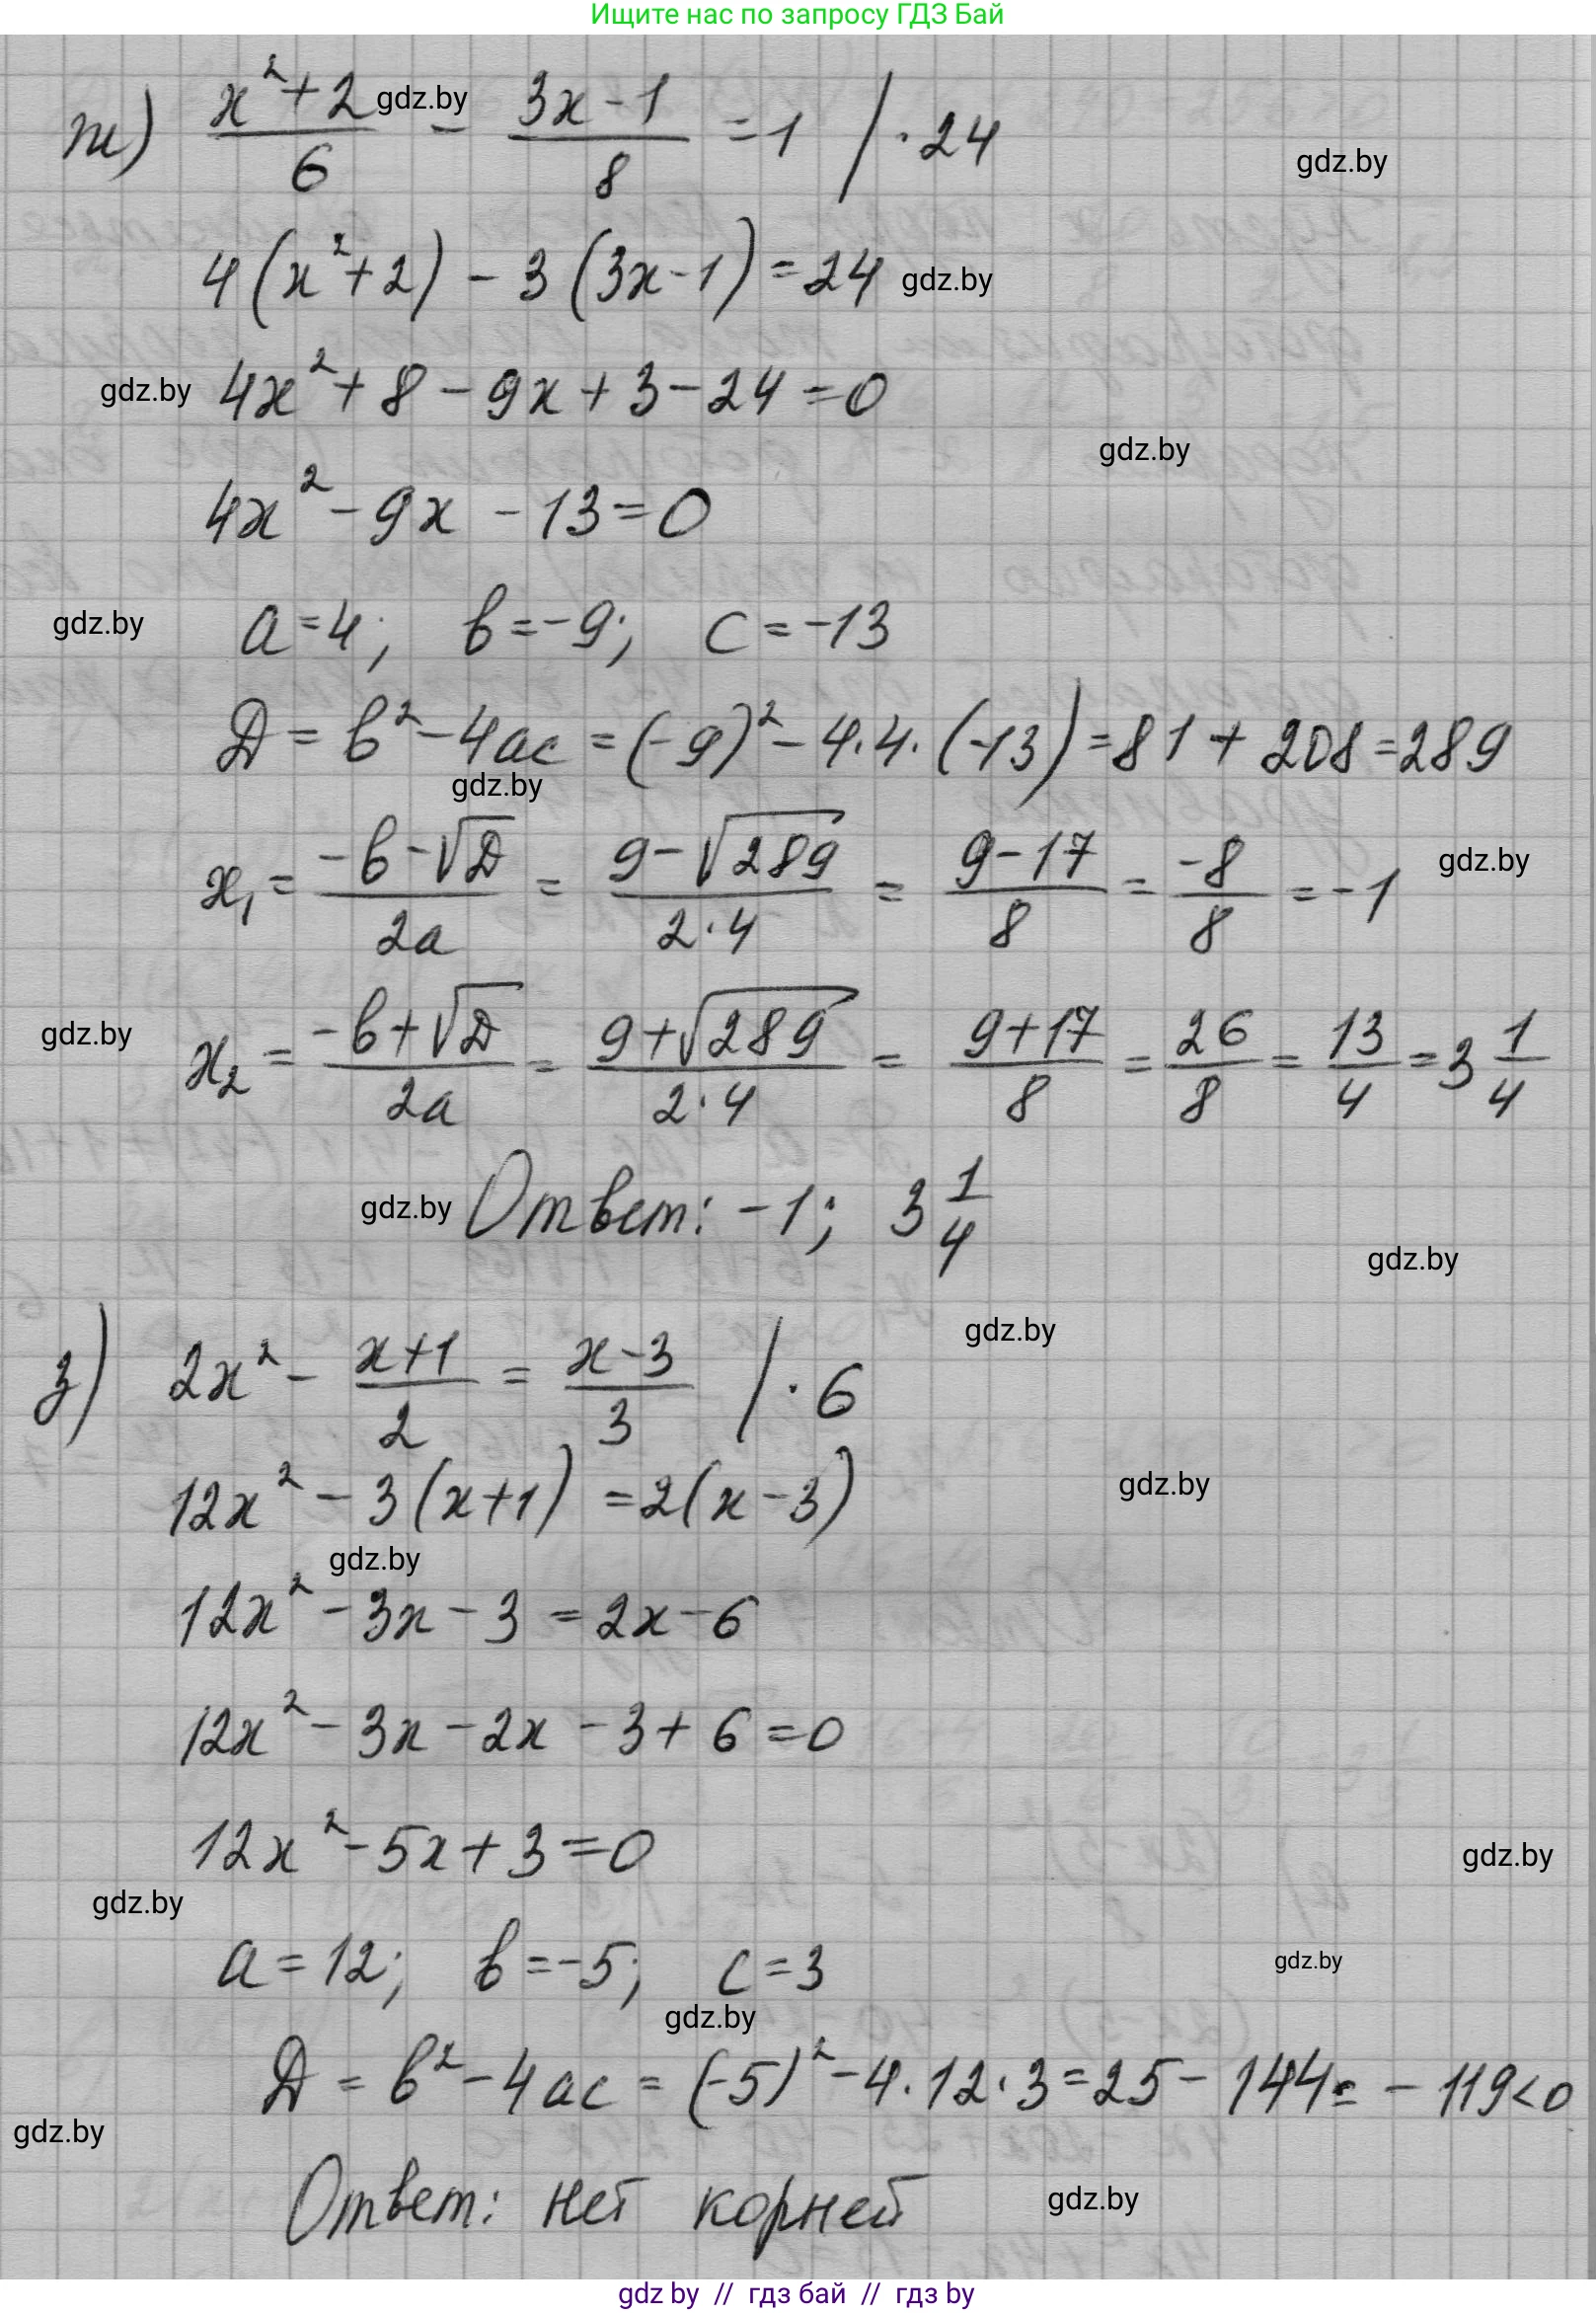 Ищите нас по запросу ГДЗ Бай
ж) (x²+2)/6 - (3x-1)/8 = 1 / ·24
gdz.by
gdz.by
4(x²+2) - 3(3x-1) = 24
gdz.by
gdz.by
4x² + 8 - 9x + 3 - 24 = 0
gdz.by
4x² - 9x - 13 = 0
gdz.by
a = 4; b = -9; c = -13
D = b² - 4ac = (-9)² - 4·4·(-13) = 81 + 208 = 289
gdz.by
x₁ = (-b - √D)/2a = (9 - √289)/(2·4) = (9-17)/8 = -8/8 = -1
gdz.by
gdz.by
x₂ = (-b + √D)/2a = (9 + √289)/(2·4) = (9+17)/8 = 26/8 = 13/4 = 3 1/4
gdz.by
Ответ: -1; 3 1/4
gdz.by
gdz.by
з) 2x² - (x+1)/2 = (x-3)/3 / ·6
12x² - 3(x+1) = 2(x-3)
gdz.by
gdz.by
12x² - 3x - 3 = 2x - 6
12x² - 3x - 2x - 3 + 6 = 0
12x² - 5x + 3 = 0
gdz.by
gdz.by
a = 12; b = -5; c = 3
gdz.by
gdz.by
D = b² - 4ac = (-5)² - 4·12·3 = 25 - 144 = -119 < 0
gdz.by
Ответ: нет корней
gdz.by
gdz by // гдз бай // гдз by